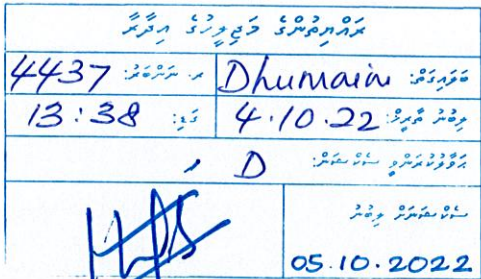 ރައްޔިތުންގެ މަޖިލީހުގެ އިދާރާ
ބަލައިގަތް: Dhumain ރ. ނަންބަރު: 4437
ލިބުނު ތާރީޚް: 4.10.22 ގަޑި: 13:38
ޙަވާލުކުރަންވީ ސެކްޝަން: D
ސެކްޝަނަށް ލިބުނު
05.10.2022